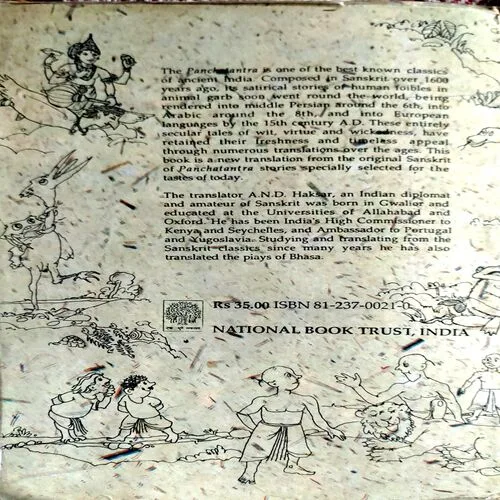 The Panchatantra is one of the best known classics
of ancient India. Composed in Sanskrit over 1600
years ago, its satirical stories of human foibles in
animal garb soon went round the world, being
rendered into middle Persian around the 6th, into
Arabic around the 8th, and into European
languages by the 15th century A.D. These entirely
secular tales of wit, virtue and wickedness, have
retained their freshness and timeless appeal
through numerous translations over the ages. This
book is a new translation from the original Sanskrit
of Panchatantra stories specially selected for the
tastes of today.
The translator A.N.D. Haksar, an Indian diplomat
and amateur of Sanskrit was born in Gwalior and
educated at the Universities of Allahabad and
Oxford. He has been India's High Commissioner to
Kenya and Seychelles, and Ambassador to Portugal
and Yugoslavia. Studying and translating from the
Sanskrit classics since many years he has also
translated the plays of Bhasa.
Rs 35.00 ISBN 81-237-0021-0
NATIONAL BOOK TRUST, INDIA